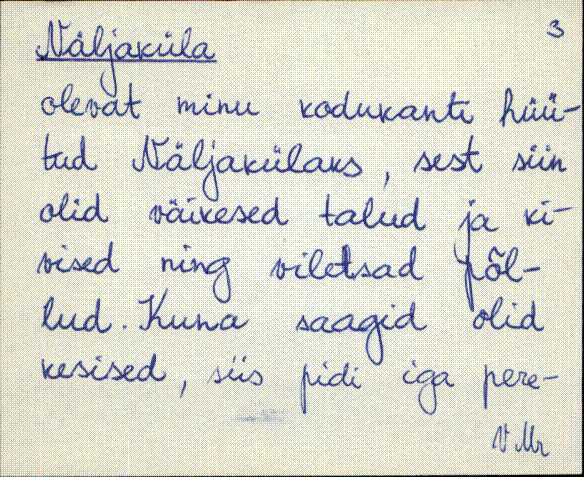 3
Näljaküla
olevat minu kodukanti hüü-
tud Näljakülaks, sest siin
olid väikesed talud ja ki-
vised ning viletsad põl-
lud. Kuna saagid olid
kesised, siis pidi iga pere-
V Mr